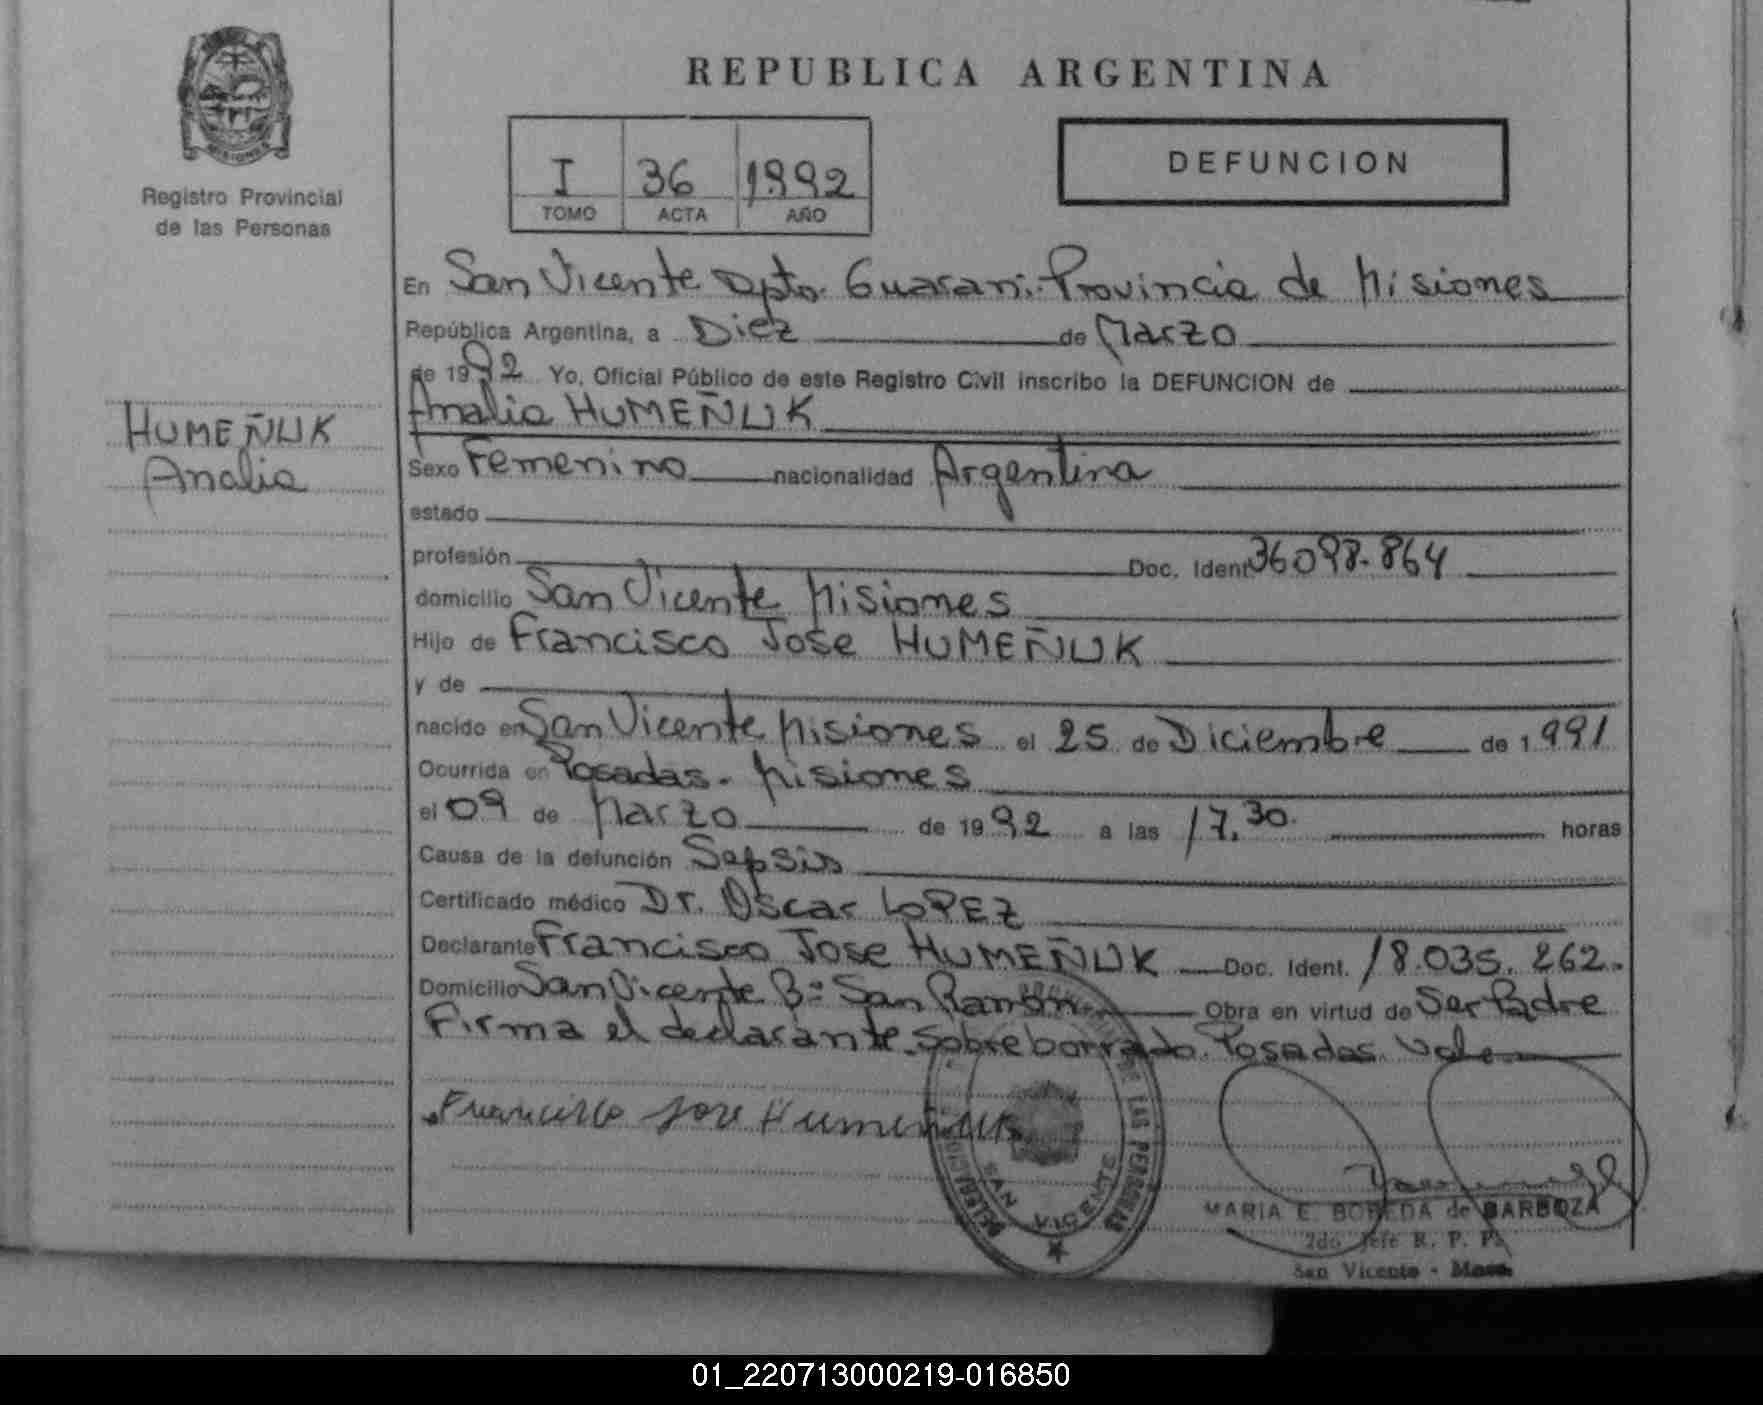 MISIONES
Registro Provincial
de las Personas
HUMEÑUK
Analia
REPUBLICA ARGENTINA
I 36 1992
TOMO ACTA AÑO
DEFUNCION
En San Vicente Dpto. Guarani. Provincia de Misiones
República Argentina, a Diez de Marzo
de 1992 Yo, Oficial Público de este Registro Civil inscribo la DEFUNCION de
Analia HUMEÑUK
Sexo Femenino nacionalidad Argentina
estado
profesión Doc. Ident. 36098.864
domicilio San Vicente Misiones
Hijo de Francisco Jose HUMEÑUK
y de
nacido en San Vicente Misiones el 25 de Diciembre de 1.991
Ocurrida en Posadas. Misiones
el 09 de Marzo de 1992 a las 17.30 horas
Causa de la defunción Sepsis
Certificado médico Dr. Oscar LOPEZ
Declarante Francisco Jose HUMEÑUK Doc. Ident. 18.035.262.
Domicilio San Vicente Bº San Ramón Obra en virtud de Ser Padre
Firma el declarante. Sobreborrado. Posadas. Vale
Francisco Jose Humeñuk
DELEGACION DE LAS PERSONAS
SAN VICENTE
MARIA E. BOBEDA de BARBOZA
2do Jefe R. P. P.
San Vicente - Mnes.
01_220713000219-016850